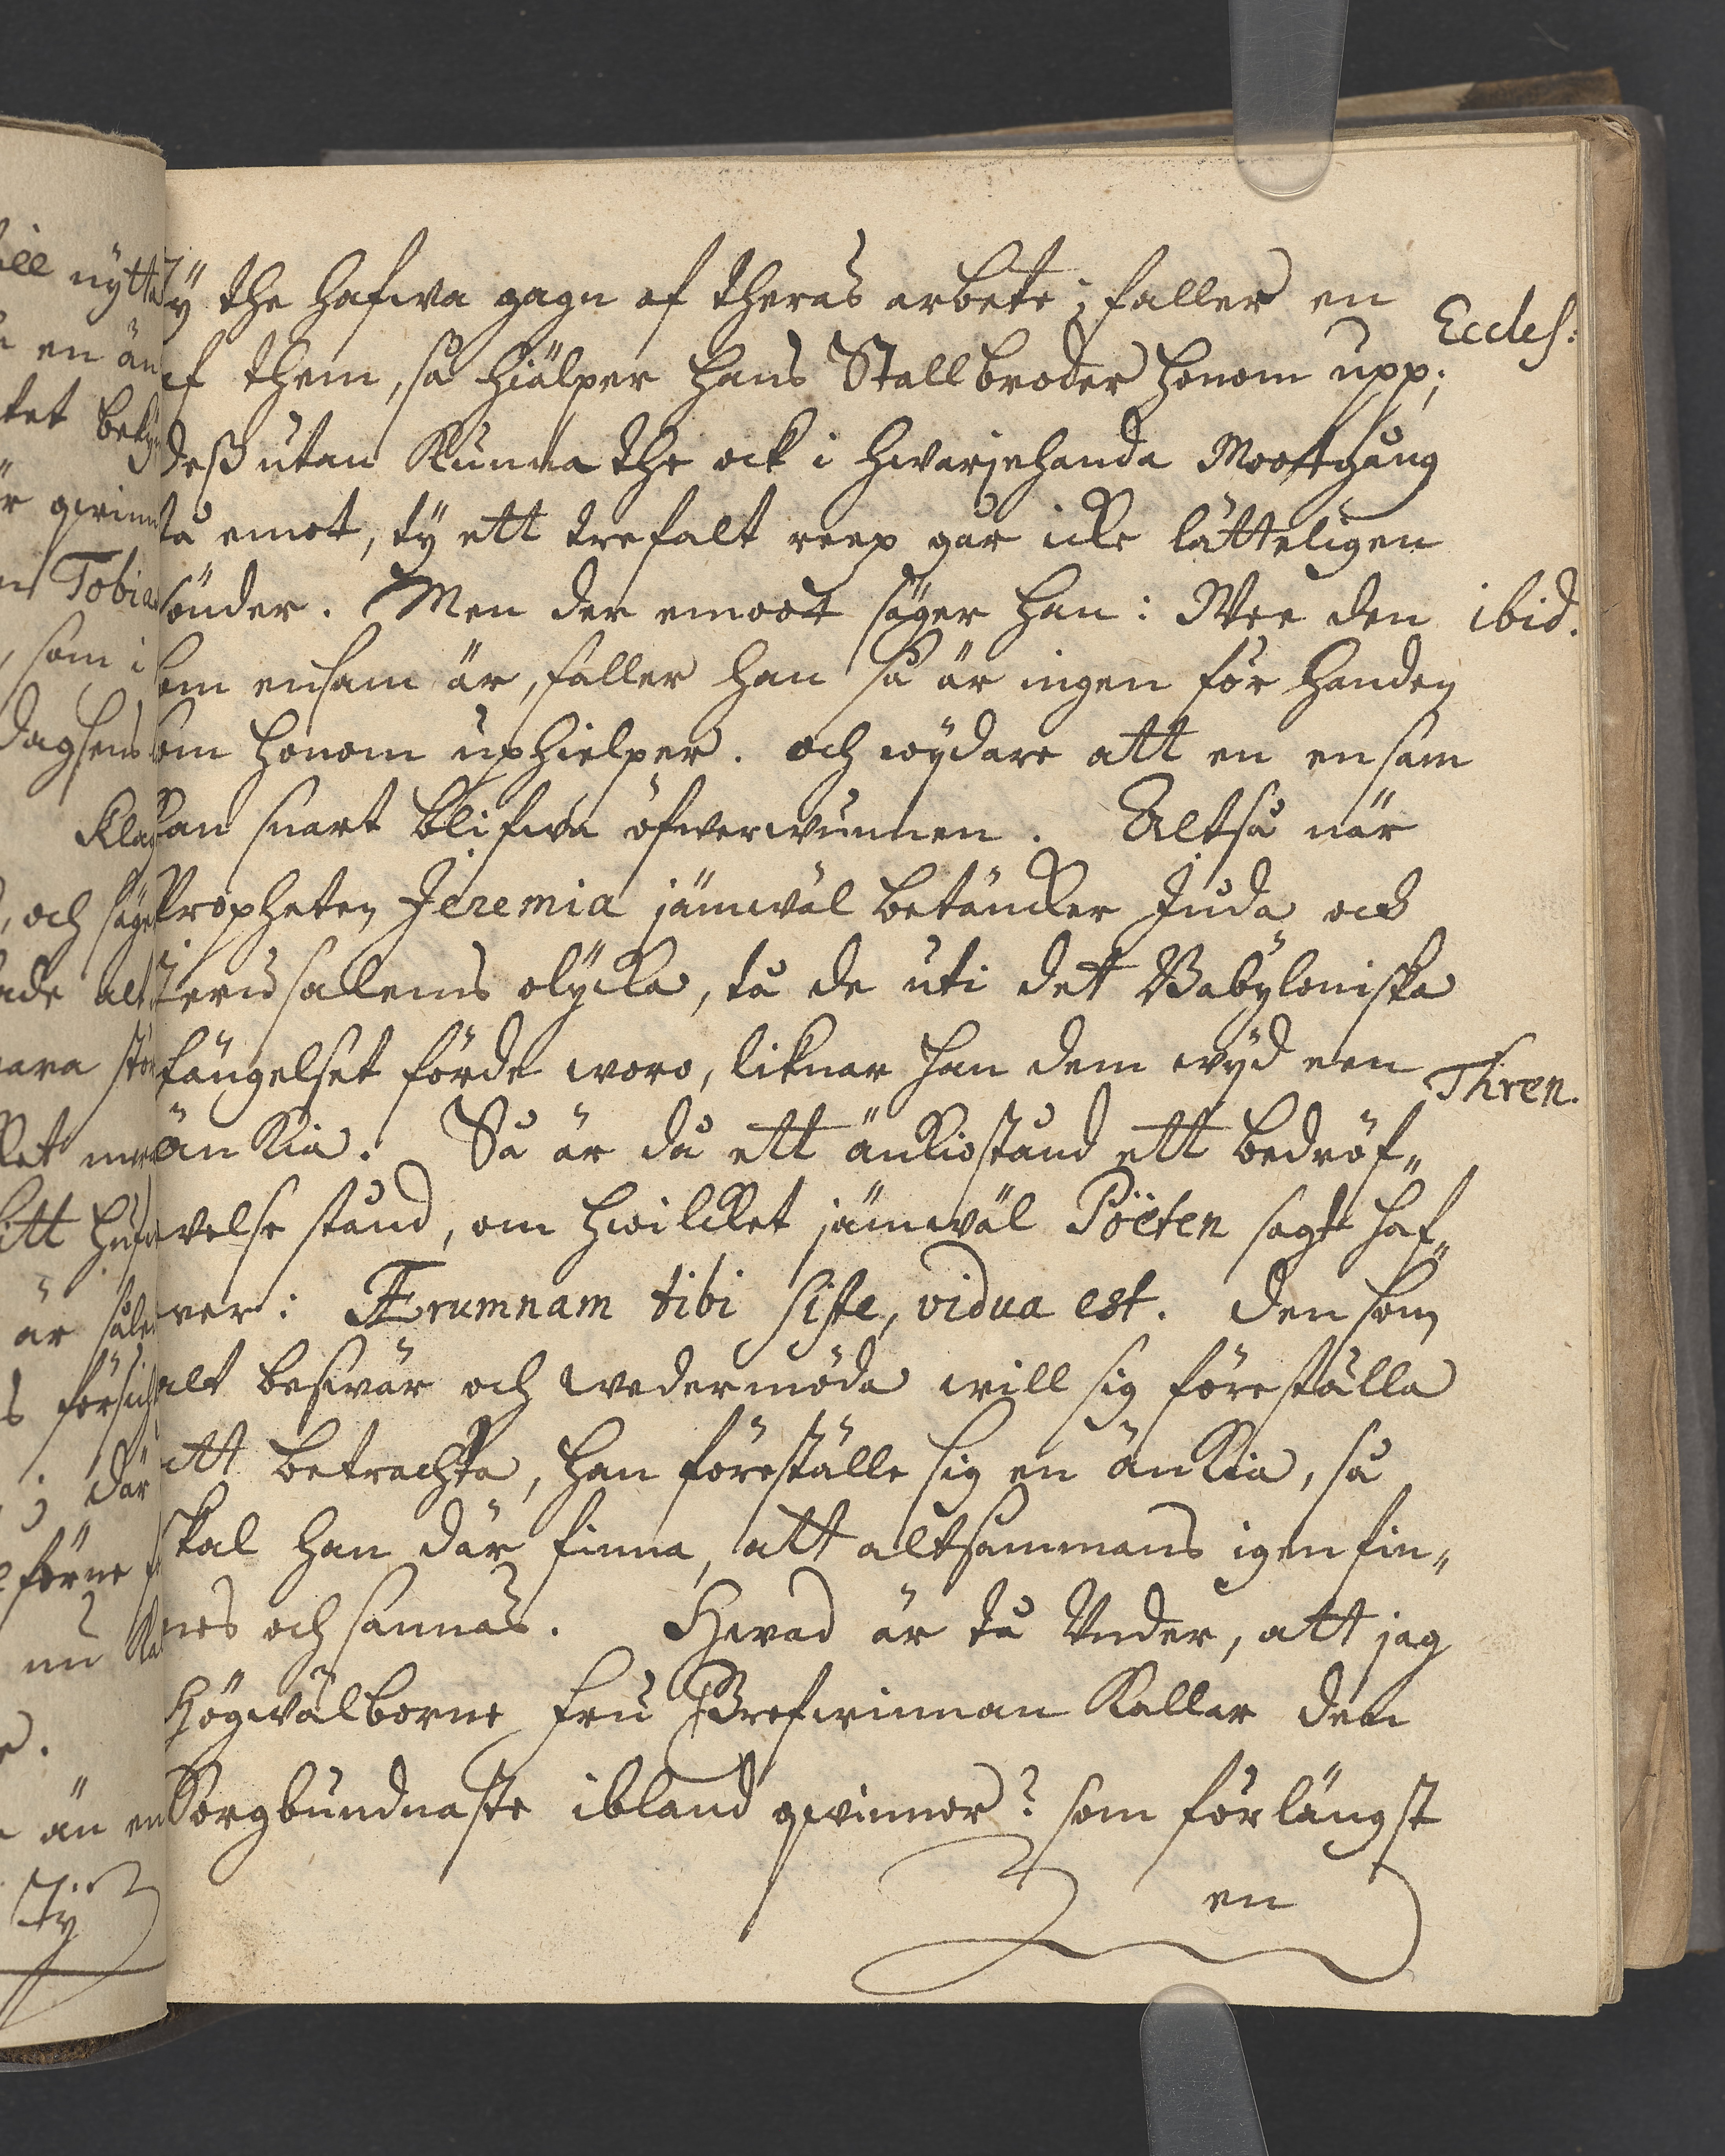 Ty the hafwa gagn af theras arbete; faller en
Eccles:
af them, så hiälper hans Stallbroder honom upp;
deßutan kunna the ock i hwarjehanda Mootgång
stå emot, ty ett trefalt reep går icke lätteligen
sönder. Men der emoot säger han: Wee den
ibid.
som ensam är, faller han så är ingen för handen
som honom uphielper. och wÿdare att en ensam
kan snart blifwa öfwerwunnen. Altså när
Propheten Jeremia jämwäl betäncker Juda och
Jerusalems olÿcka, tå de uti det Babÿloniska
fängelset förde woro, liknar han dem wÿd een
Thren.
änckia. Så är då ett änkiostånd ett bedröf„
velse stånd, om hwilcket jämwäl Poëten sagt haf„
ver: Ærumnam tibi siste, vidua est. Den som
alt beswär och wedermöda will sig föreställa
att betrachta, han föreställe sig en änckia, så
skal han där finna, att altsammans igenfin„
nes och sannas. Hwad är tå Under, att jag
Högwälborne Fru Grefwinnan kallar den
Sorgbundnaste ibland qwinnor? som förlängst
en